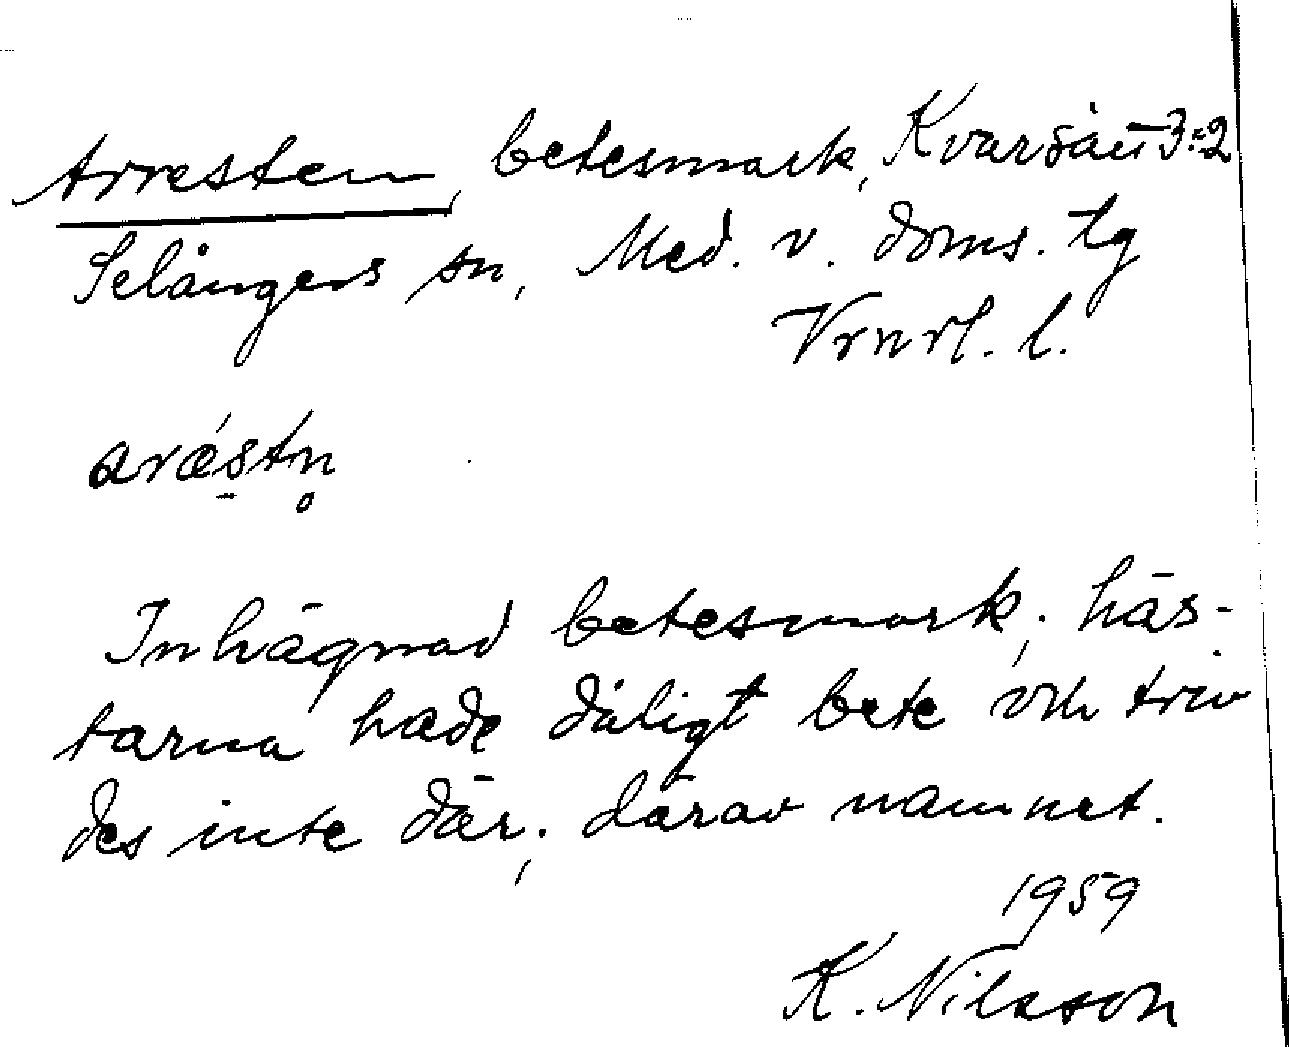 Arresten, betesmark, Kvarsätt 3:2
Selångers sn, Med. v. doms. tg
Vrnrl. l.
aræ´stn̥
Inhägnad betesmark; häs-
tarna hade dåligt bete och triv
des inte där; därav namnet.
1959
K. Nilsson